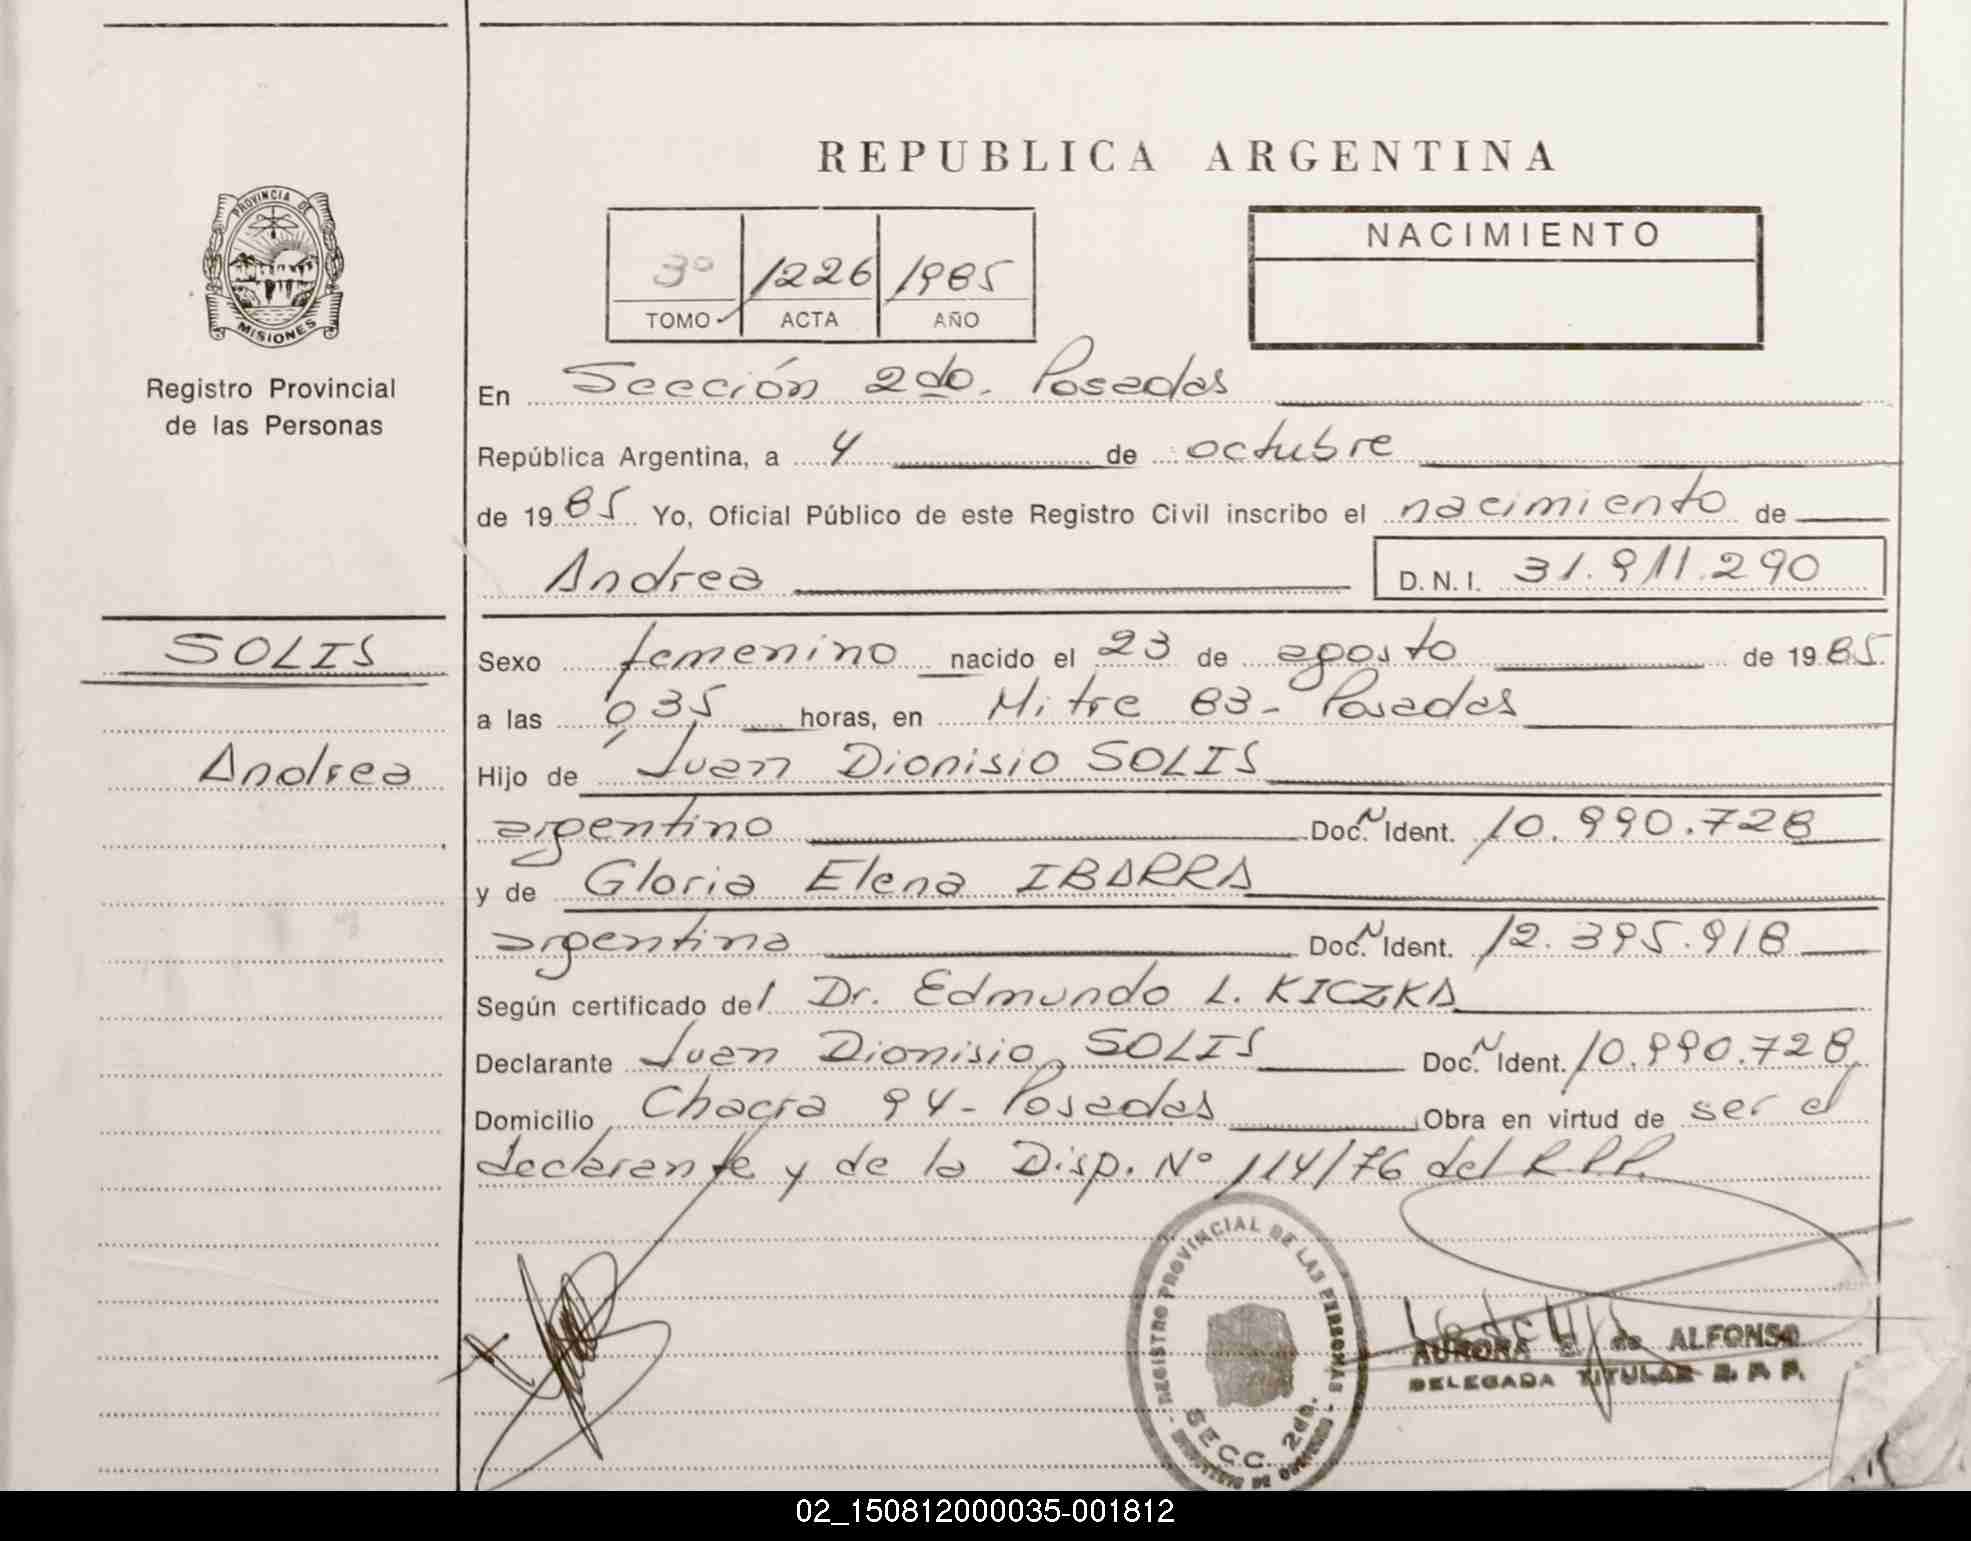 REPUBLICA ARGENTINA
PROVINCIA DE
MISIONES
Registro Provincial
de las Personas
3º 1226 1985
TOMO ACTA AÑO
NACIMIENTO
En Sección 2da. Posadas
República Argentina, a 4 de octubre
de 1985 Yo, Oficial Público de este Registro Civil inscribo el nacimiento de
Andrea D.N.I. 31.911.290
SOLIS
Andrea
Sexo femenino nacido el 23 de agosto de 1985.
a las 0,35 horas, en Mitre 83- Posadas
Hijo de Juan Dionisio SOLIS
argentino Doc. N Ident. 10.990.728
y de Gloria Elena IBARRA
argentina Doc. N Ident. 12.395.918
Según certificado del Dr. Edmundo L. KICZKA
Declarante Juan Dionisio SOLIS Doc. N Ident. 10.990.728
Domicilio Chacra 94- Posadas Obra en virtud de ser el
declarante y de la Disp. Nº 114/76 del R.P.P.
REGISTRO PROVINCIAL DE LAS PERSONAS
SECC. 2da.
MINISTERIO DE GOBIERNO
AURORA E. de ALFONSO
DELEGADA TITULAR R. P. P.
02_150812000035-001812